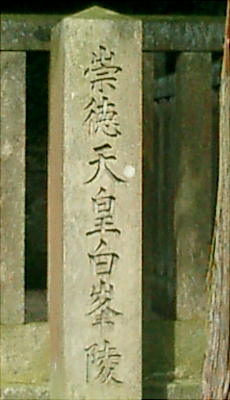 崇徳天皇白峯陵